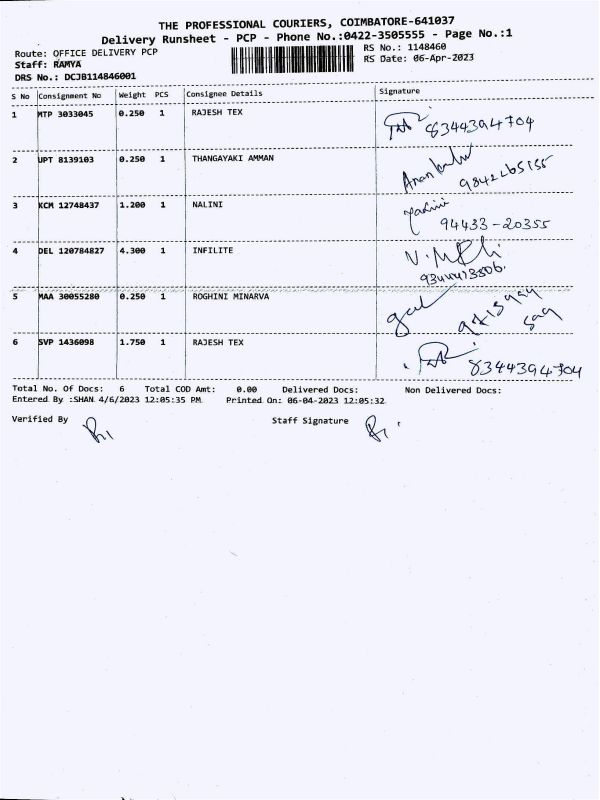 THE PROFESSIONAL COURIERS, COIMBATORE-641037
Delivery Runsheet - PCP - Phone No.:0422-3505555 - Page No.:1
Route: OFFICE DELIVERY PCP
RS No.: 1148460
Staff: RAMYA
RS Date: 06-Apr-2023
DRS No.: DCJB114846001
S No Consignment No Weight PCS Consignee Details Signature
1 MTP 3033045 0.250 1 RAJESH TEX
8344394704
2 UPT 8139103 0.250 1 THANGAYAKI AMMAN
3 KCM 12748437 1.200 1 NALINI
94433-20355
4 DEL 120784827 4.300 1 INFILITE
5 MAA 30055280 0.250 1 ROGHINI MINARVA
6 SVP 1436098 1.750 1 RAJESH TEX
8344394704
Total No. Of Docs: 6 Total COD Amt: 0.00 Delivered Docs: Non Delivered Docs:
Entered By :SHAN 4/6/2023 12:05:35 PM Printed On: 06-04-2023 12:05:32
Verified By Staff Signature